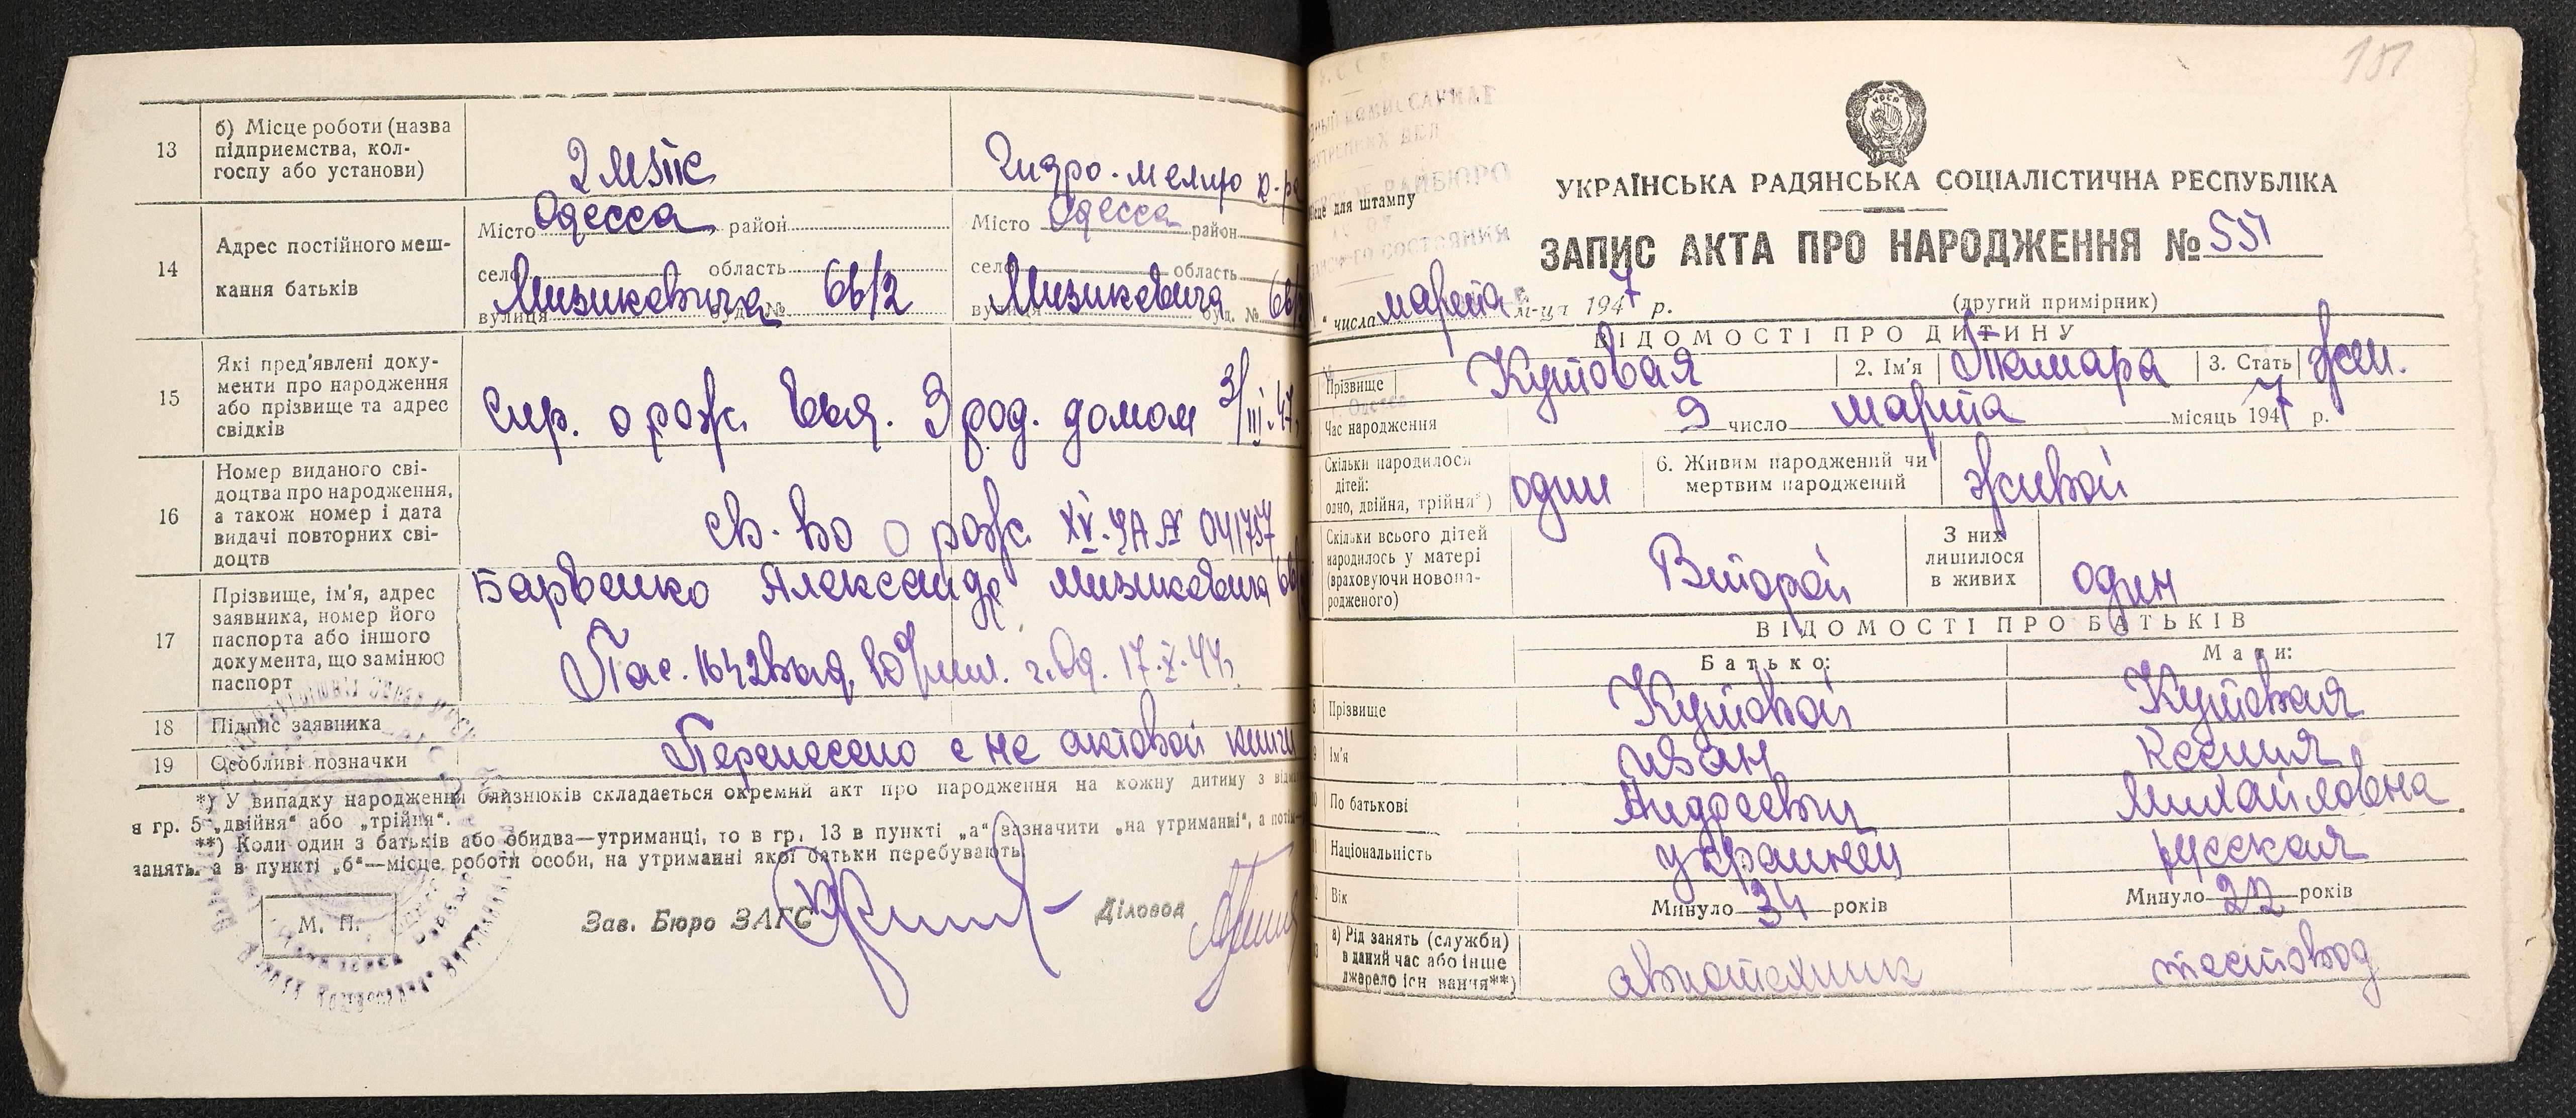 13
б) Місце роботи (назва
підприємства, кол-
госпу або установи)
Гидро-мелио
14
Адрес постійного меш-
кання батьків
Місто Одесса район
село область
вулиця Мизикевича буд. № 66/2
Місто Одесса район
село область
вулиця Мизикевича буд. №
15
Які пред'явлені доку-
менти про народження
або прізвище та адрес
свідків
Спр. о рожд. 3 род. домом 3/III.47
16
Номер виданого сві-
доцтва про народження,
а також номер і дата
видачі повторних сві-
доцтв
св-во о рожд. XV-ЯА № 041757
17
Прізвище, ім'я, адрес
заявника, номер його
паспорта або іншого
документа, що замінює
паспорт
Александр Мизикевича
18
Підпис заявника
19
Особливі позначки
Перенесено с не актовой книги
*) У випадку народження близнюків складається окремий акт про народження на кожну дитину з
я гр. 5 „двійня“ або „трійня“.
**) Коли один з батьків або обидва—утриманці, то в гр. 13 в пункті „а“ зазначити „на утриманні“, а
занять, а в пункті „б“—місце роботи особи, на утриманні якої батьки перебувають
М. П.
Зав. Бюро ЗАГС
Діловод
181
УКРАЇНСЬКА РАДЯНСЬКА СОЦІАЛІСТИЧНА РЕСПУБЛІКА
для штампу
ЗАПИС АКТА ПРО НАРОДЖЕННЯ № 551
числа марта м-ця 1947 р.
(другий примірник)
ВІДОМОСТІ ПРО ДИТИНУ
Прізвище Кутовая 2. Ім'я Тамара 3. Стать жен.
Час народження число марта місяць 1947 р.
Скільки народилося
дітей:
одно, двійня, трійня*) один
6. Живим народжений чи
мертвим народжений живой
Скільки всього дітей
народилось у матері
(враховуючи новона-
родженого) Второй
З них
лишилося
в живих один
ВІДОМОСТІ ПРО БАТЬКІВ
Батько: Мати:
Прізвище Кутовой Кутовая
Ім'я Иван Ксения
По батькові Андреевич Михайловна
Національність украинец русская
Вік Минуло 34 років Минуло 22 років
а) Рід занять (служби)
в даний час або інше
джерело існування**) авиотехник тестовод